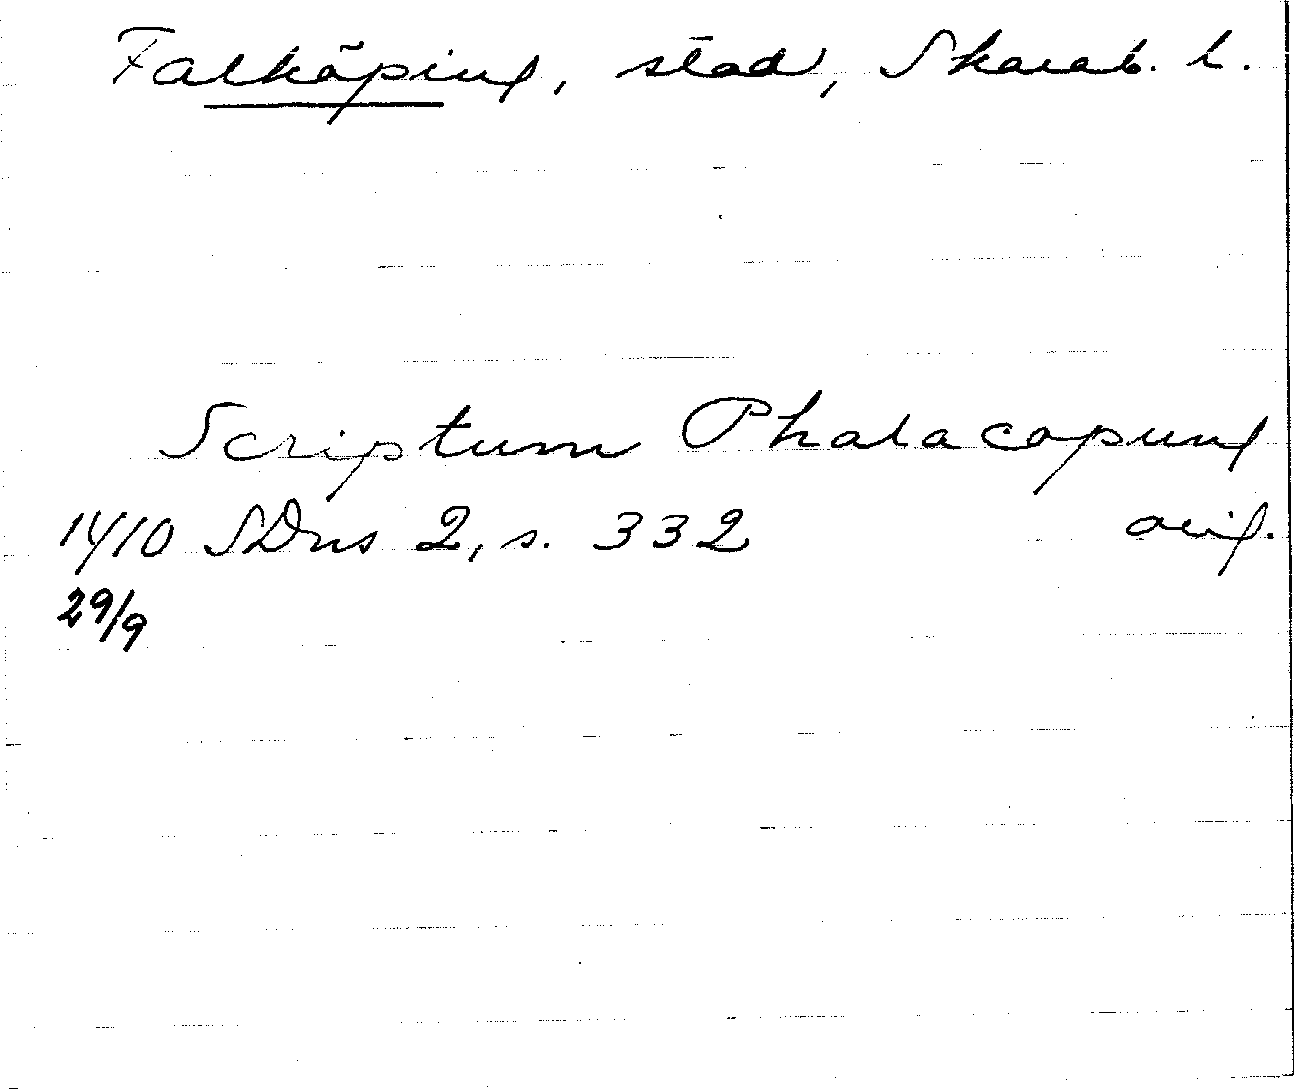 Falköping, stad, Skarab. l.
Scriptum Phalacopung
1410 SDns 2, s. 332 orig.
29/9